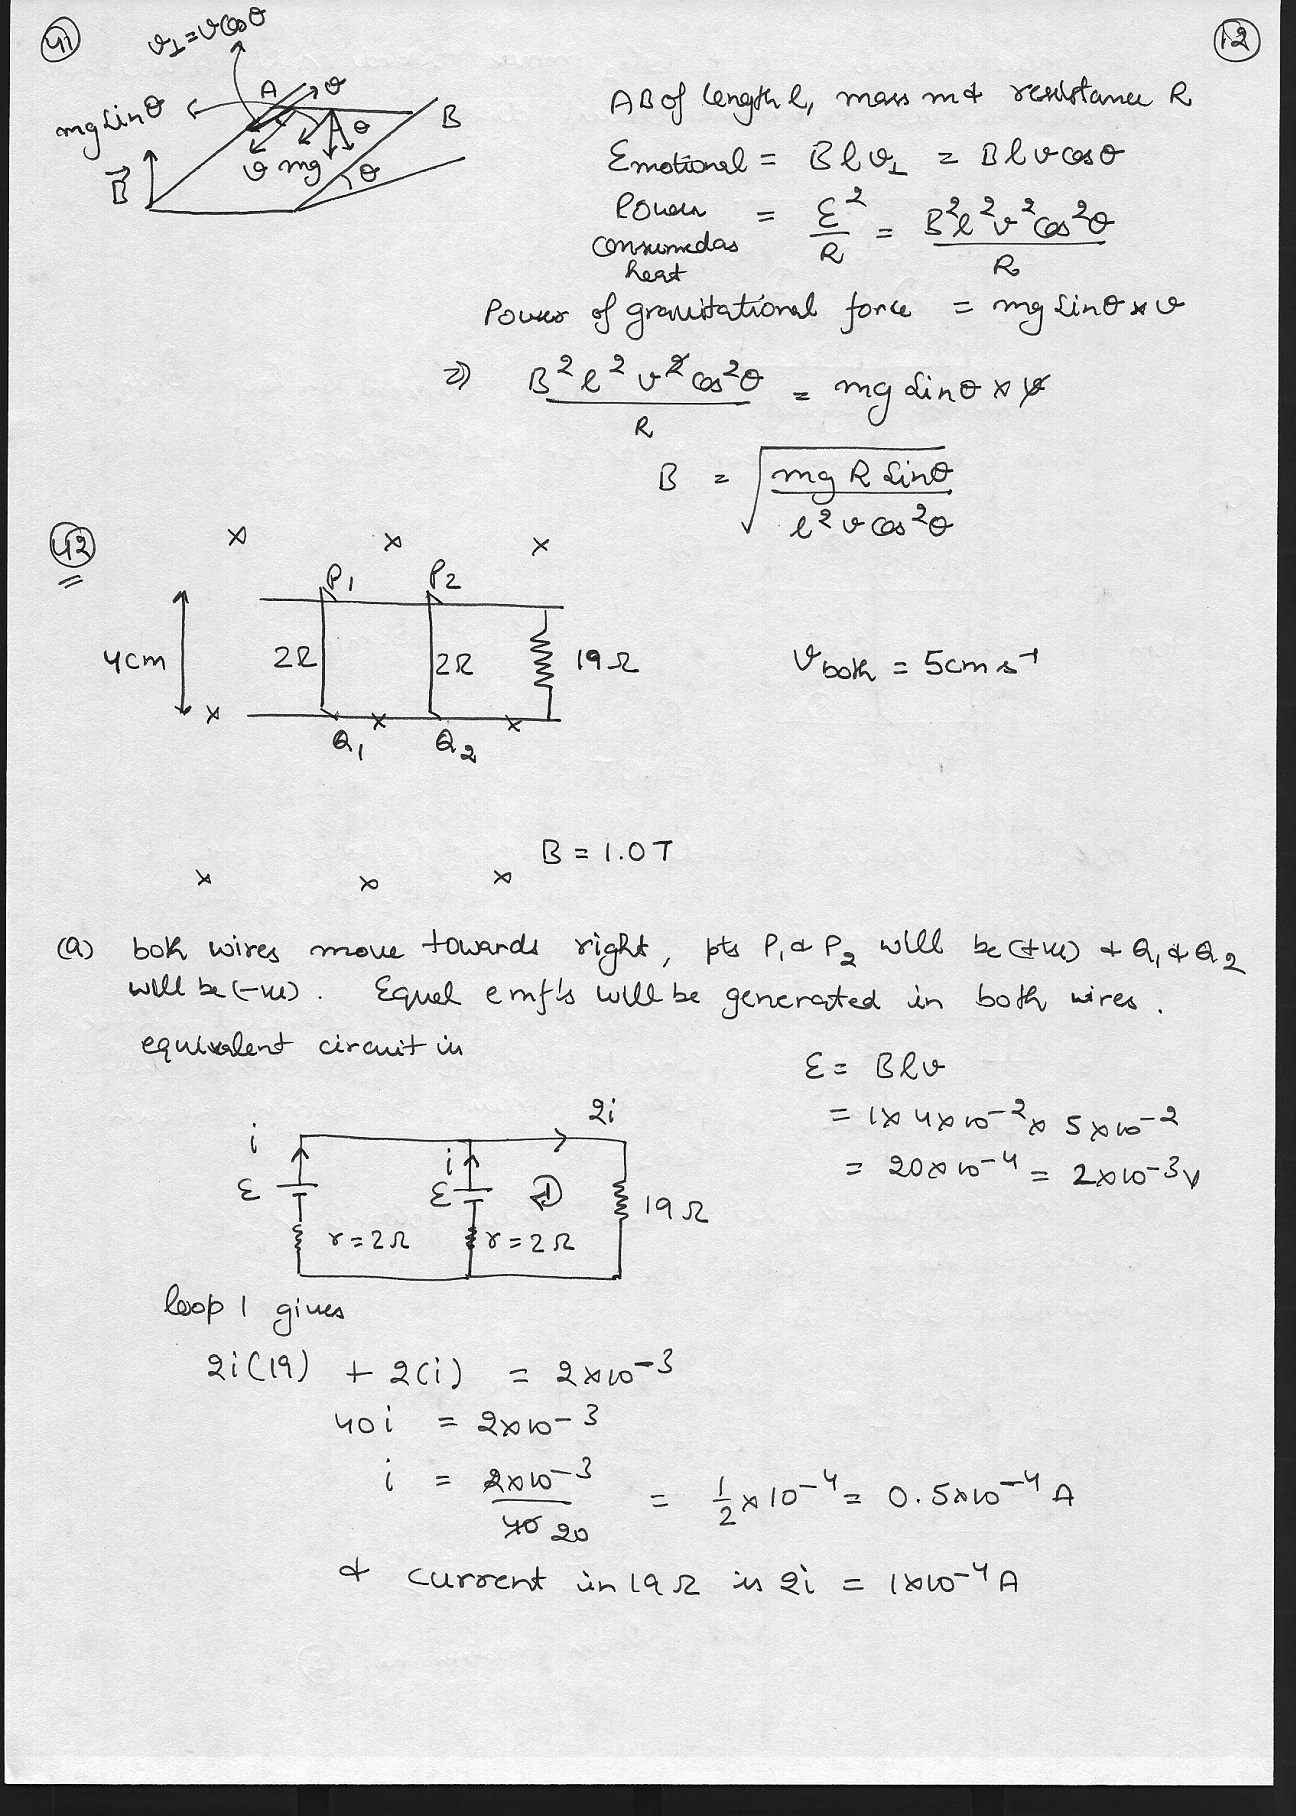 41
12
v⊥ = v cos θ
A
v
mg sin θ
θ
B
v
mg
θ
B⃗
AB of length l, mass m & resistance R
Emotional = B l v⊥ = B l v cos θ
Power consumed as heat = ε²/R = B² l² v² cos² θ / R
Power of gravitational force = mg sin θ × v
⇒ B² l² v² cos² θ / R = mg sin θ × v
B = √(mg R sin θ / l² v cos² θ)
42
× × ×
P1 P2
4cm
2Ω
2Ω
19 Ω
v both = 5cm s⁻¹
× × ×
Q1 Q2
B = 1.0T
× × ×
(a) both wires move towards right, pts P1 & P2 will be (+ve) & Q1 & Q2
will be (-ve). Equal emf's will be generated in both wires.
equivalent circuit is
ε = B l v
= 1 × 4 × 10⁻² × 5 × 10⁻²
= 20 × 10⁻⁴ = 2 × 10⁻³ V
2i
i
i
ε
ε
1
19 Ω
r = 2 Ω
r = 2 Ω
loop 1 gives
2i(19) + 2(i) = 2 × 10⁻³
40i = 2 × 10⁻³
i = 2 × 10⁻³ / 40 20 = 1/2 × 10⁻⁴ = 0.5 × 10⁻⁴ A
& current in 19 Ω is 2i = 1 × 10⁻⁴ A